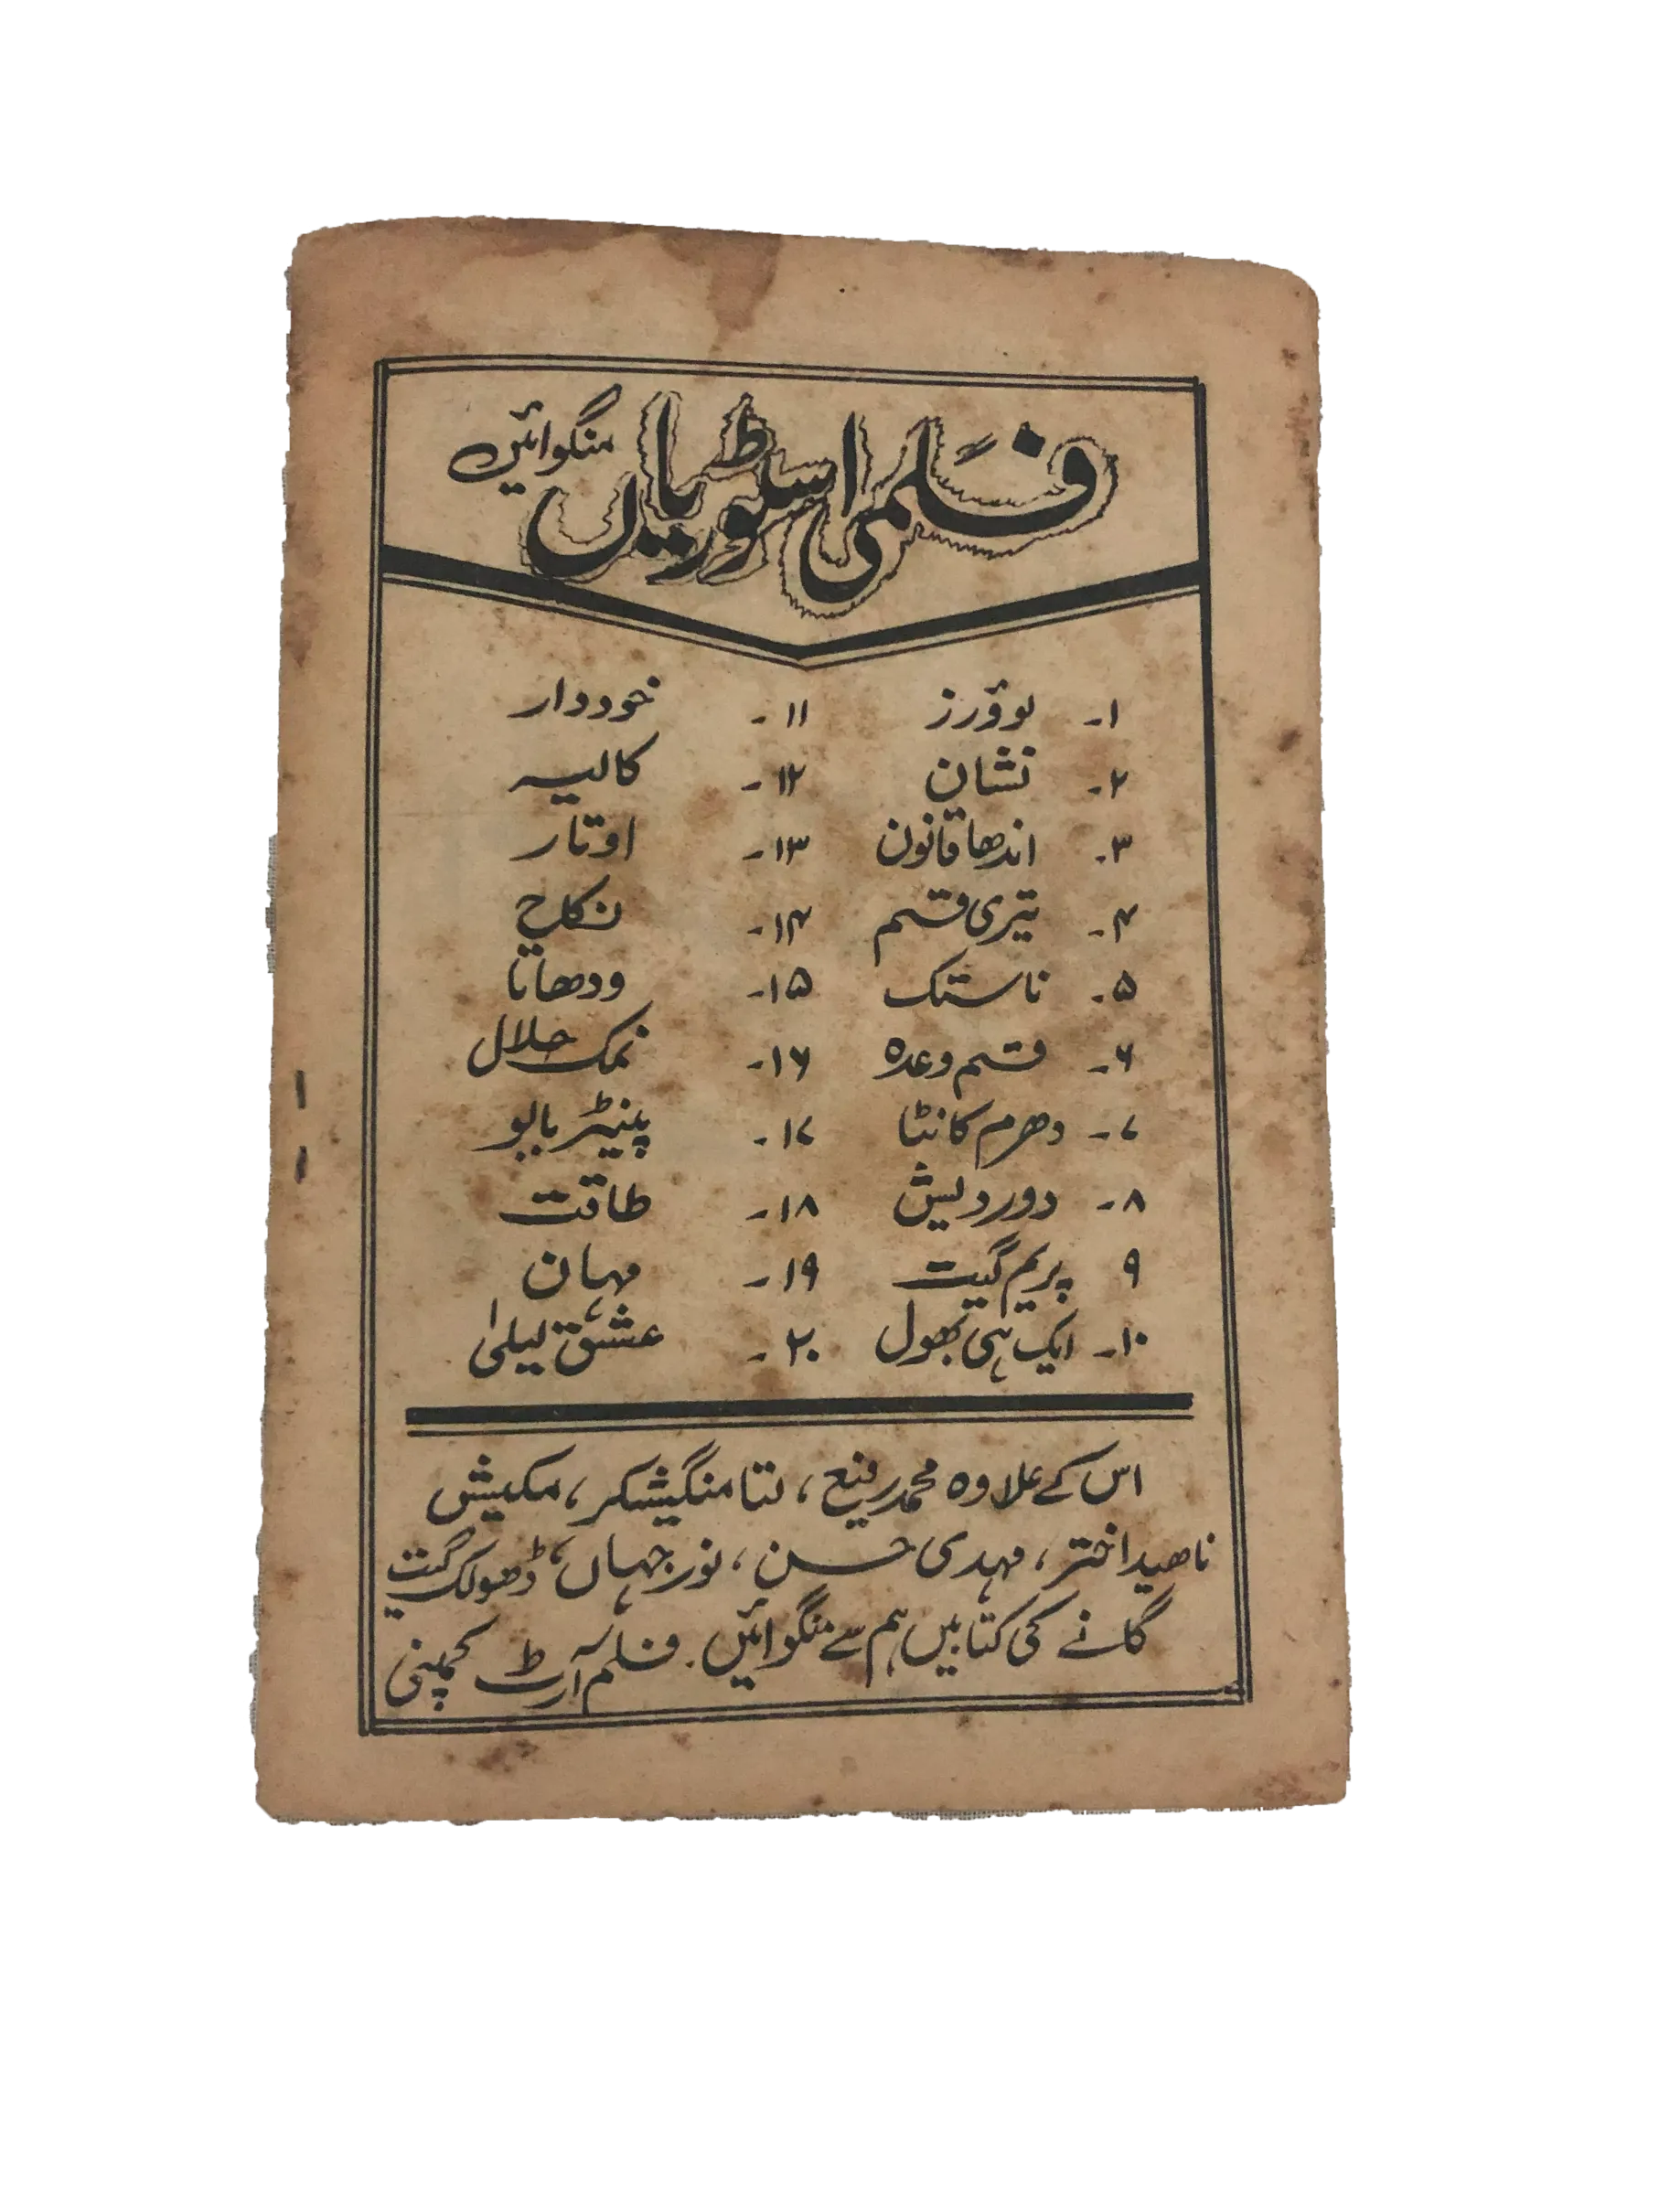 فلمی اسٹوریاں منگوائیں
۱۔ لوؤرز ۱۱۔ خوددار
۲۔ نشان ۱۲۔ کالیہ
۳۔ اندھا قانون ۱۳۔ اوتار
۴۔ تیری قسم ۱۴۔ نکاح
۵۔ ناستک ۱۵۔ ودھاتا
۶۔ قسم وعدہ ۱۶۔ نمک حلال
۷۔ دھرم کانٹا ۱۷۔ پینٹر بابو
۸۔ دور دیش ۱۸۔ طاقت
۹ پریم گیت ۱۹۔ مہان
۱۰۔ ایک ہی بھول ۲۰۔ عشق لیلیٰ
اس کے علاوہ محمد رفیع، لتا منگیشکر، مکیش
ناھید اختر، مہدی حسن، نور جہاں، ڈھولک گیت
گانے کی کتابیں ہم سے منگوائیں۔ فلم آرٹ کمپنی